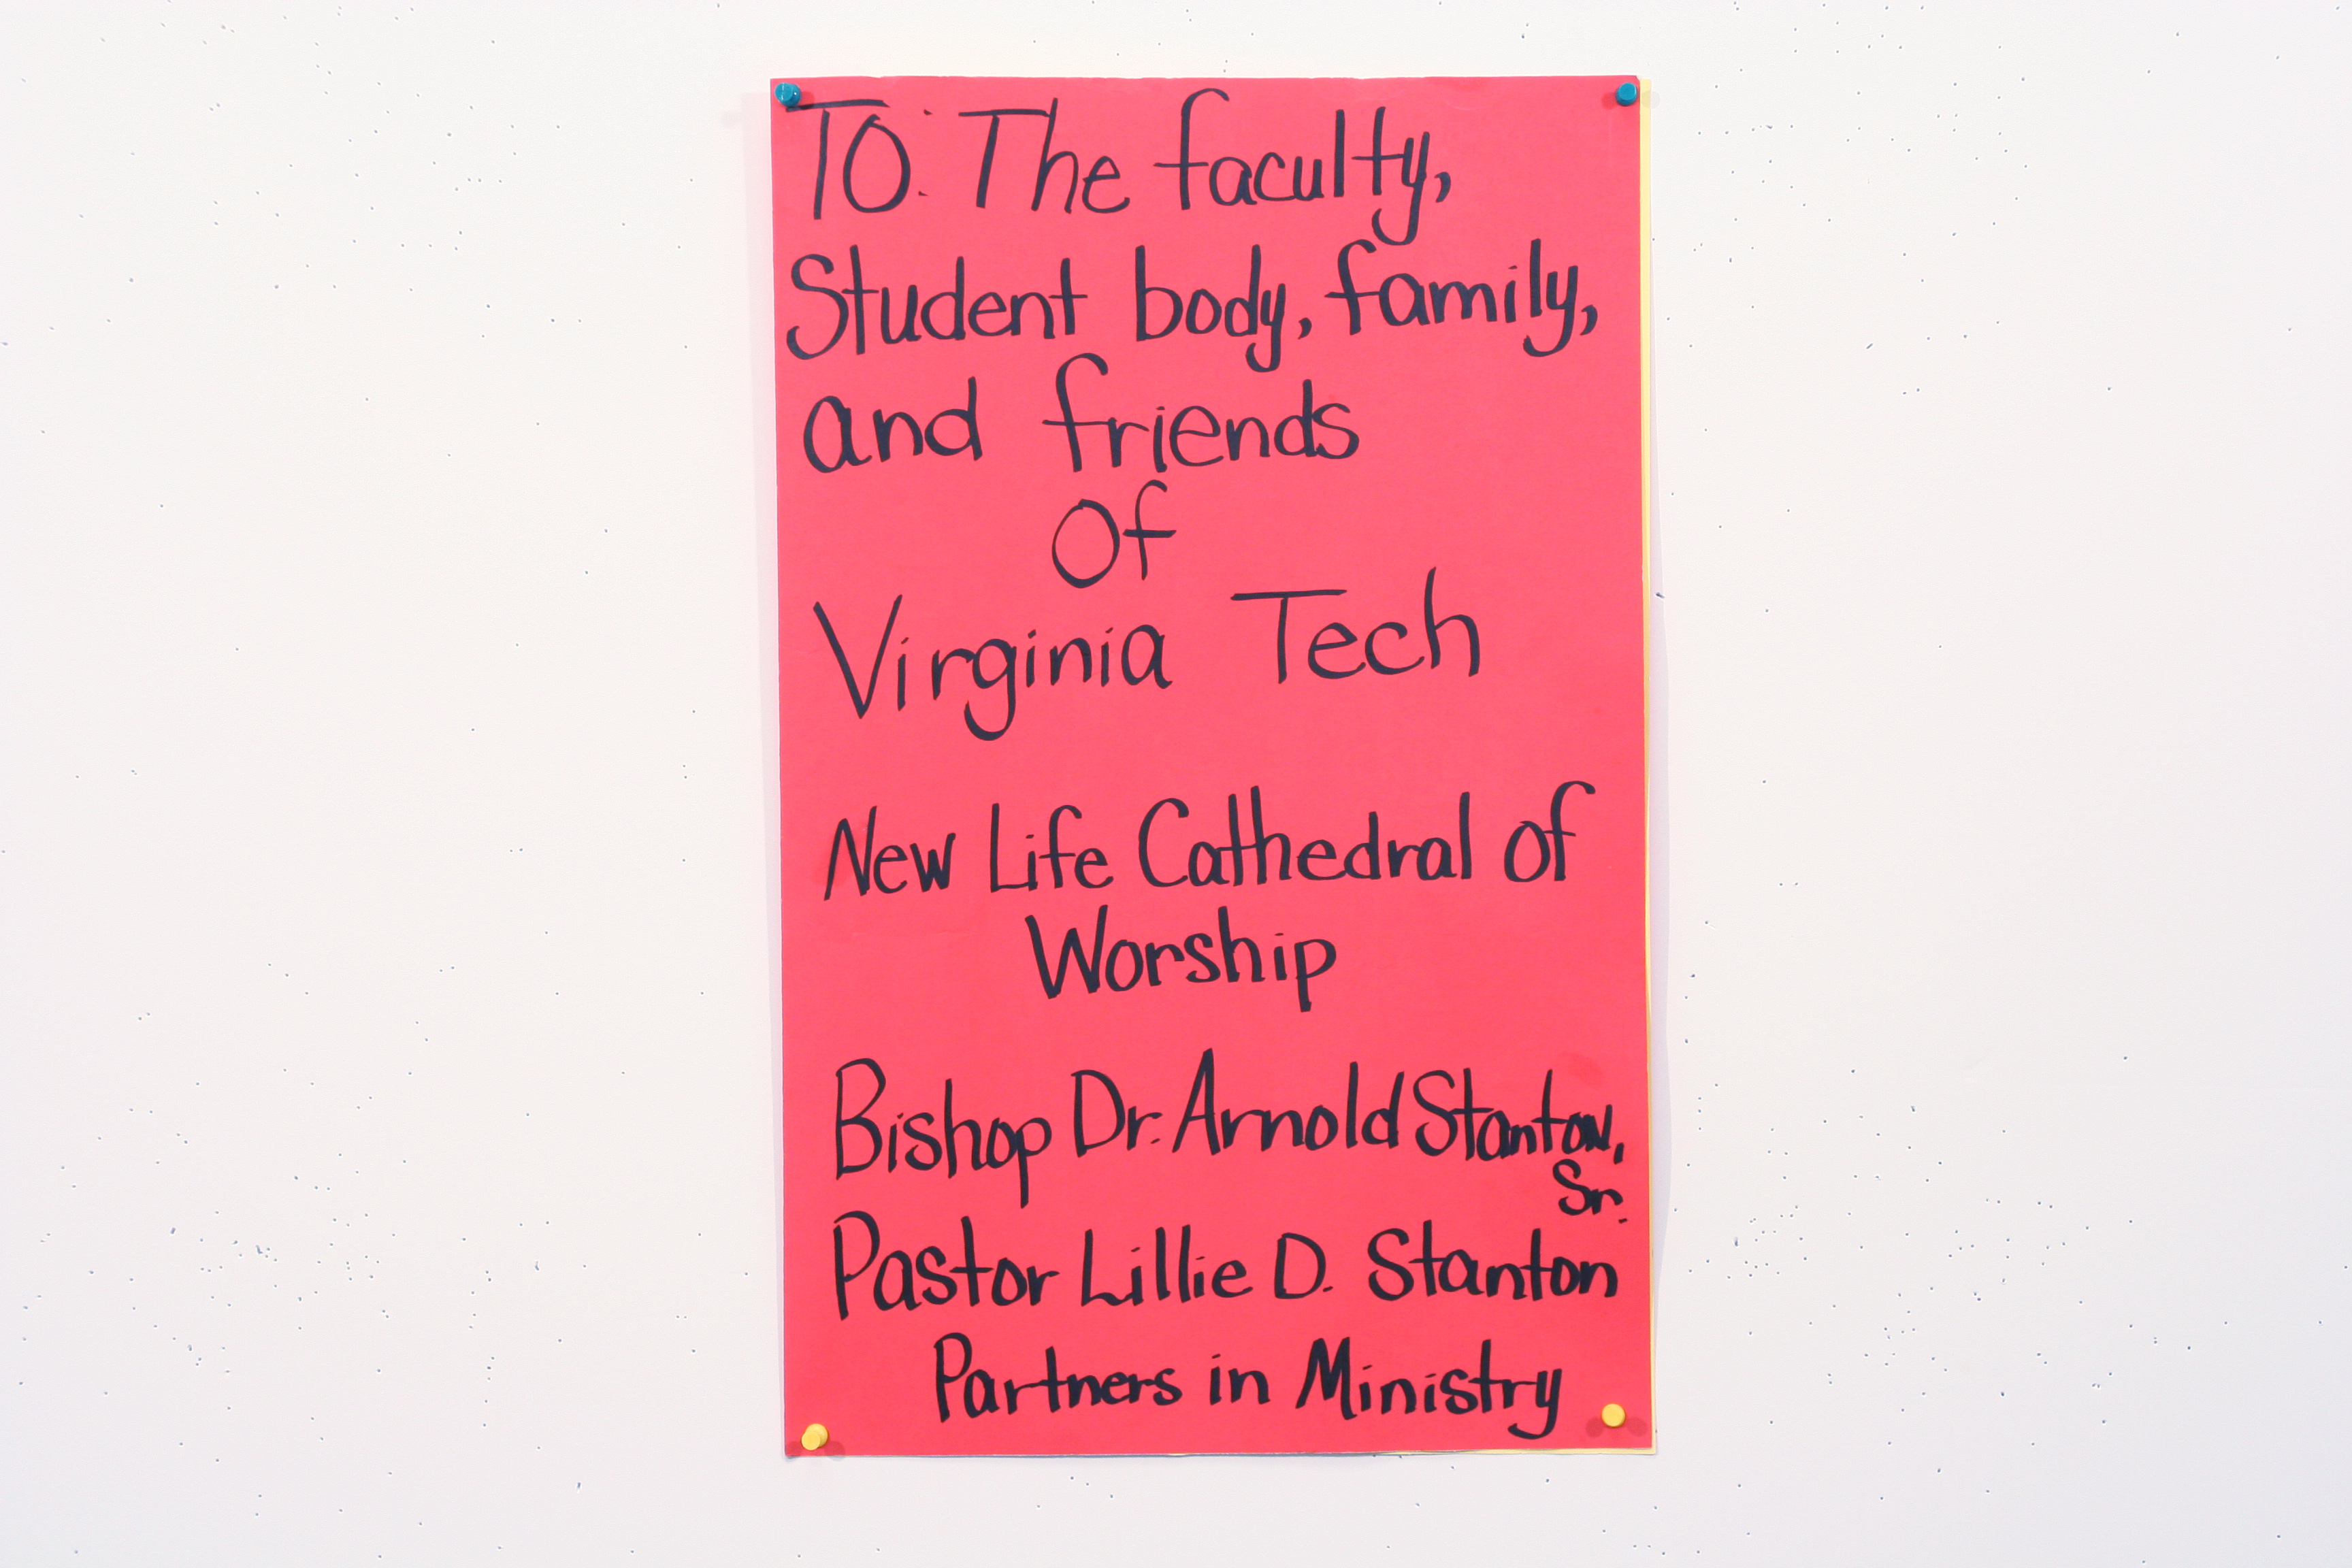 To: The faculty,
Student body, family,
and friends
Of
Virginia Tech
New Life Cathedral of
Worship
Bishop Dr. Arnold Stanton,
Sr.
Pastor Lillie D. Stanton
Partners in Ministry